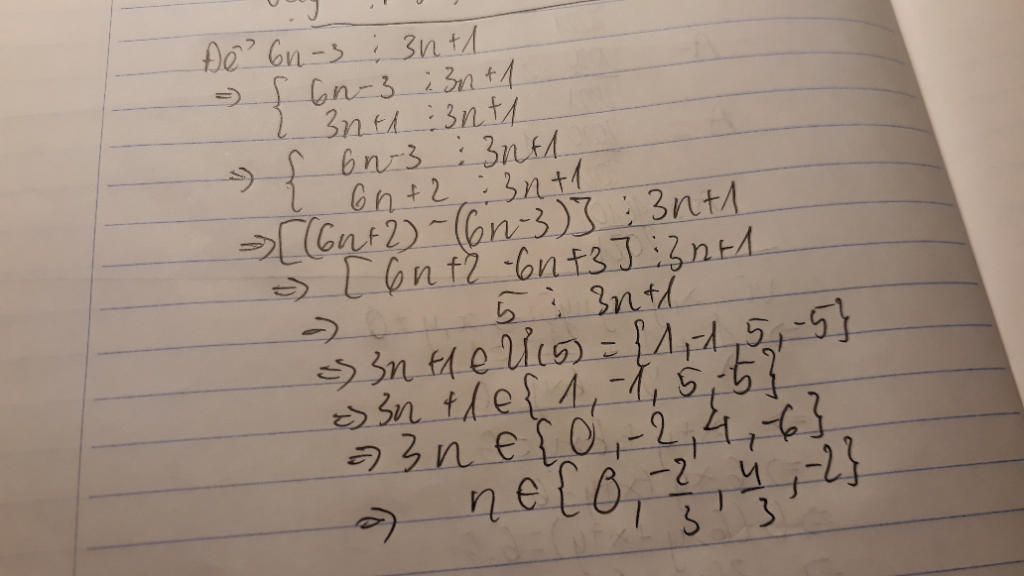 Để 6n-3 ⋮ 3n+1
=> { 6n-3 ⋮ 3n+1
3n+1 ⋮ 3n+1
=> { 6n-3 ⋮ 3n+1
6n+2 ⋮ 3n+1
=> [(6n+2)-(6n-3)] ⋮ 3n+1
=> [6n+2-6n+3] ⋮ 3n+1
=> 5 ⋮ 3n+1
=> 3n+1 ∈ Ư(5) = {1,-1,5,-5}
=> 3n+1 ∈ {1,-1,5,-5}
=> 3n ∈ {0,-2,4,-6}
=> n ∈ {0, -2/3, 4/3, -2}